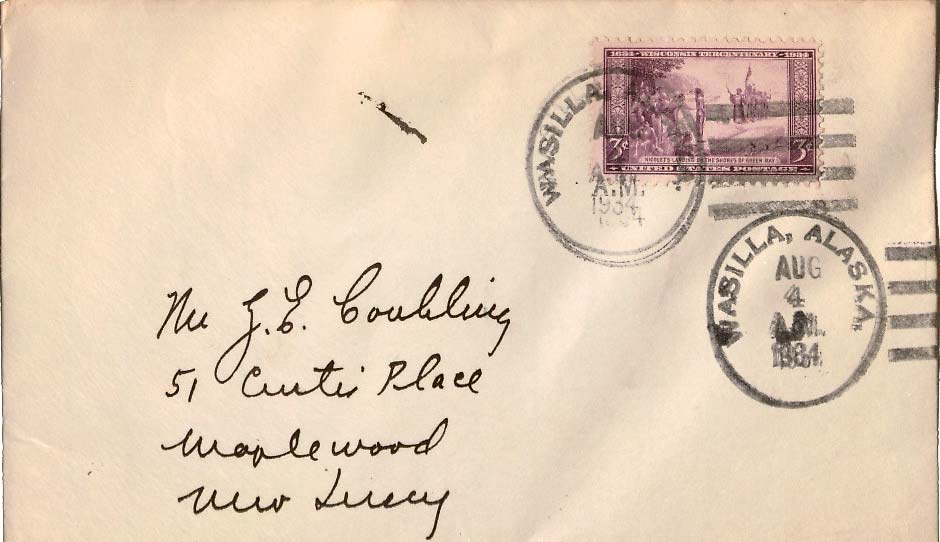 1634 - WISCONSIN TERCENTENARY - 1934
3¢ 3¢
NICOLET'S LANDING ON THE SHORES OF GREEN BAY
UNITED STATES POSTAGE
WASILLA
A.M.
1934
WASILLA, ALASKA.
AUG
4
1934
Mr G. E. Conkling
51 Curtis Place
Maplewood
New Jersey